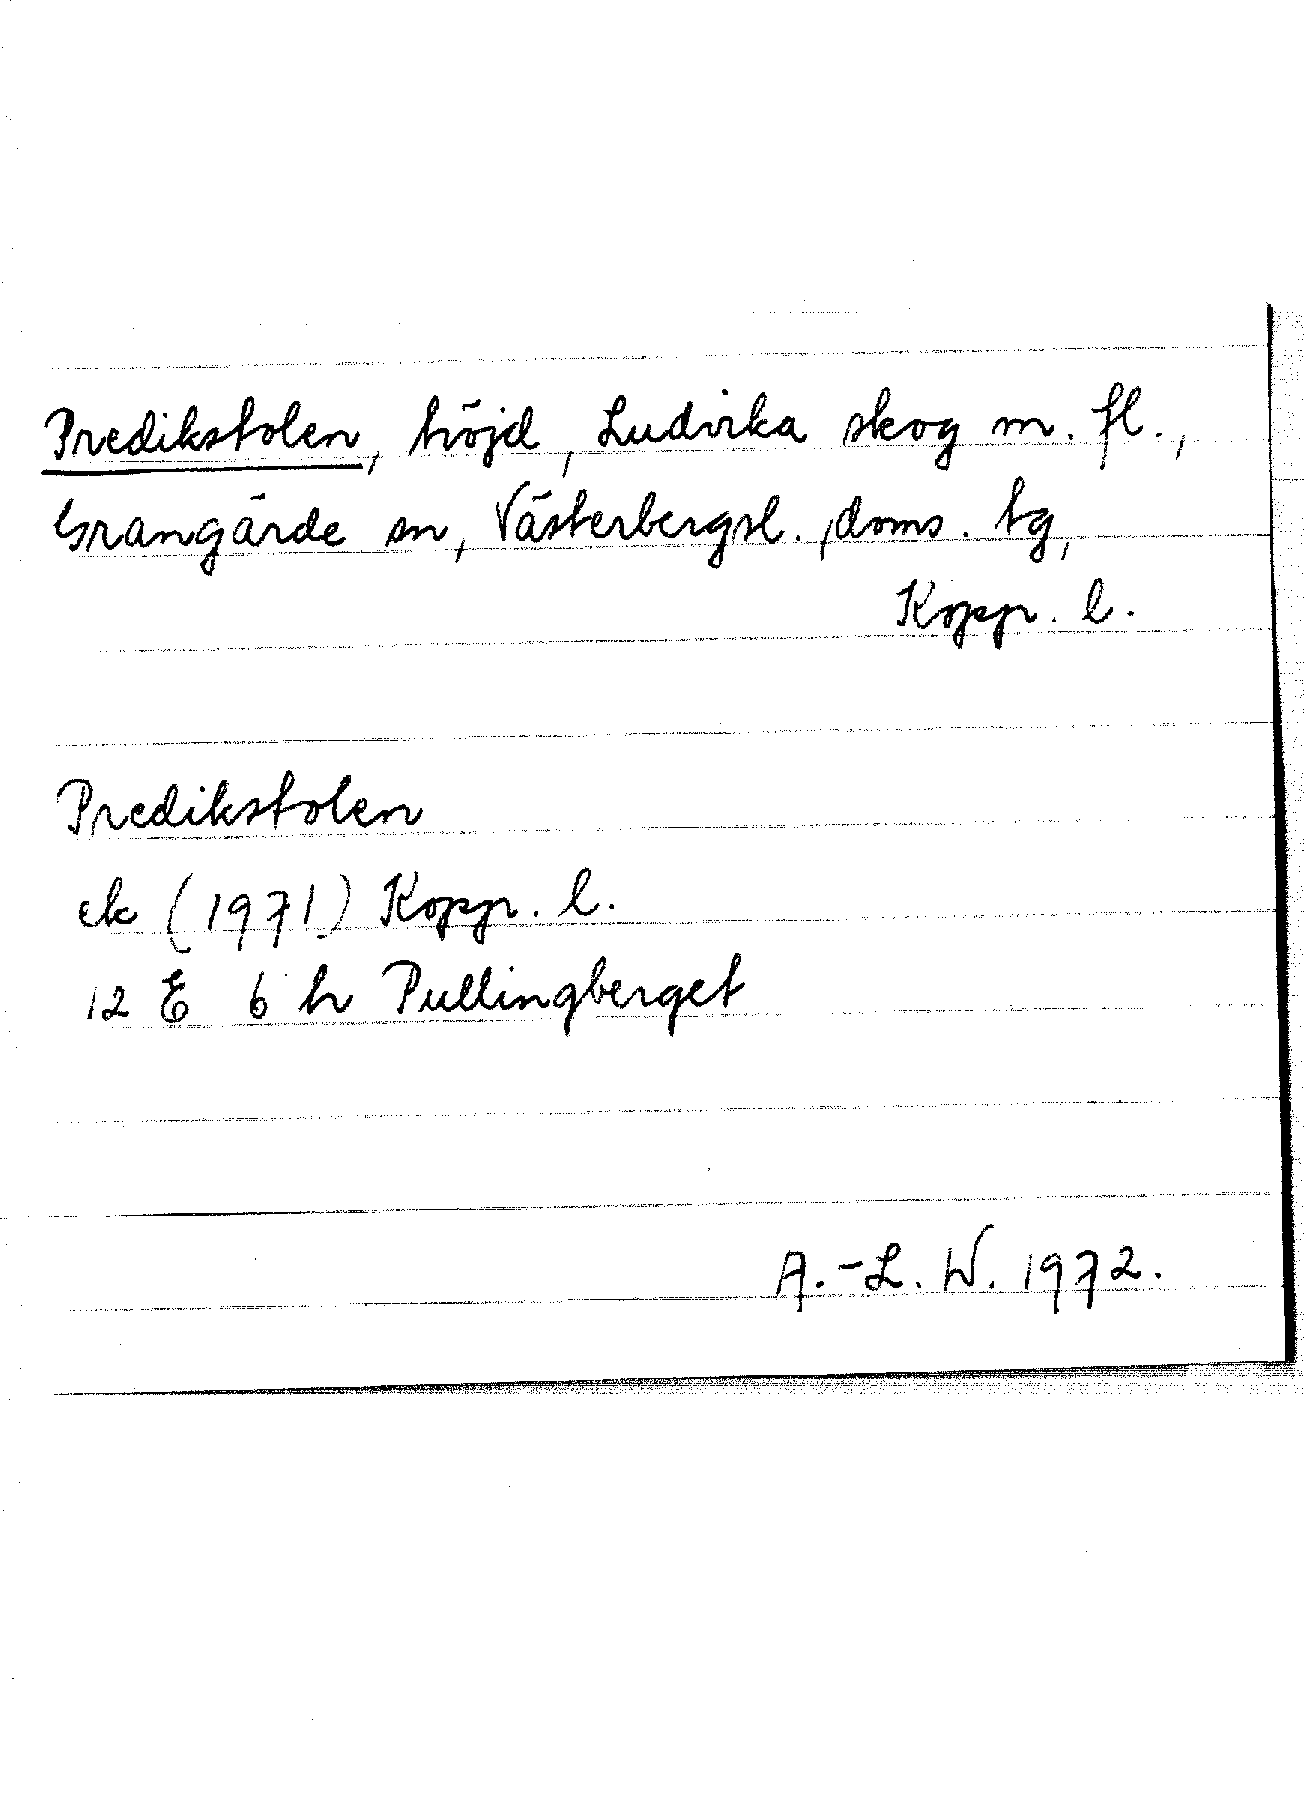 Predikstolen, höjd, Ludvika skog m. fl.,
Grangärde sn, Västerbergsl. doms. tg,
Kopp. l.
Predikstolen
ek (1971) Kopp. l.
12 E 6 h Pullingberget
A.-L. W. 1972.